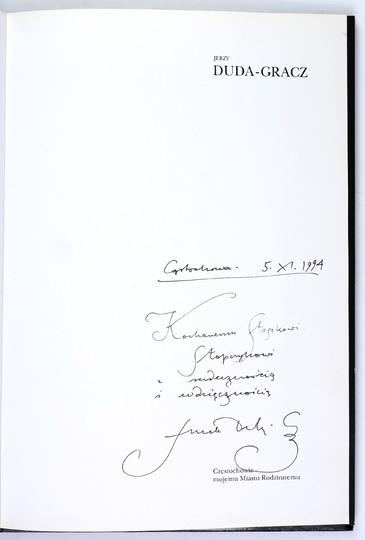 JERZY
DUDA-GRACZ
Częstochowa. 5. XI. 1994
Kochanemu Staszkowi
z serdecznością
i wdzięcznością
Częstochowie -
mojemu Miastu Rodzinnemu